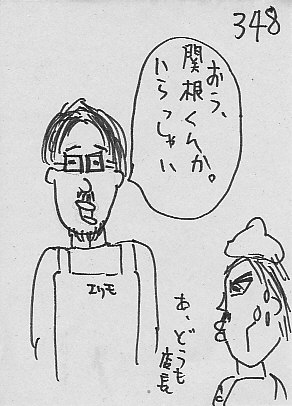 348
おう、
関根くんか。
いらっしゃい
エリモ
あ、どうも
店長